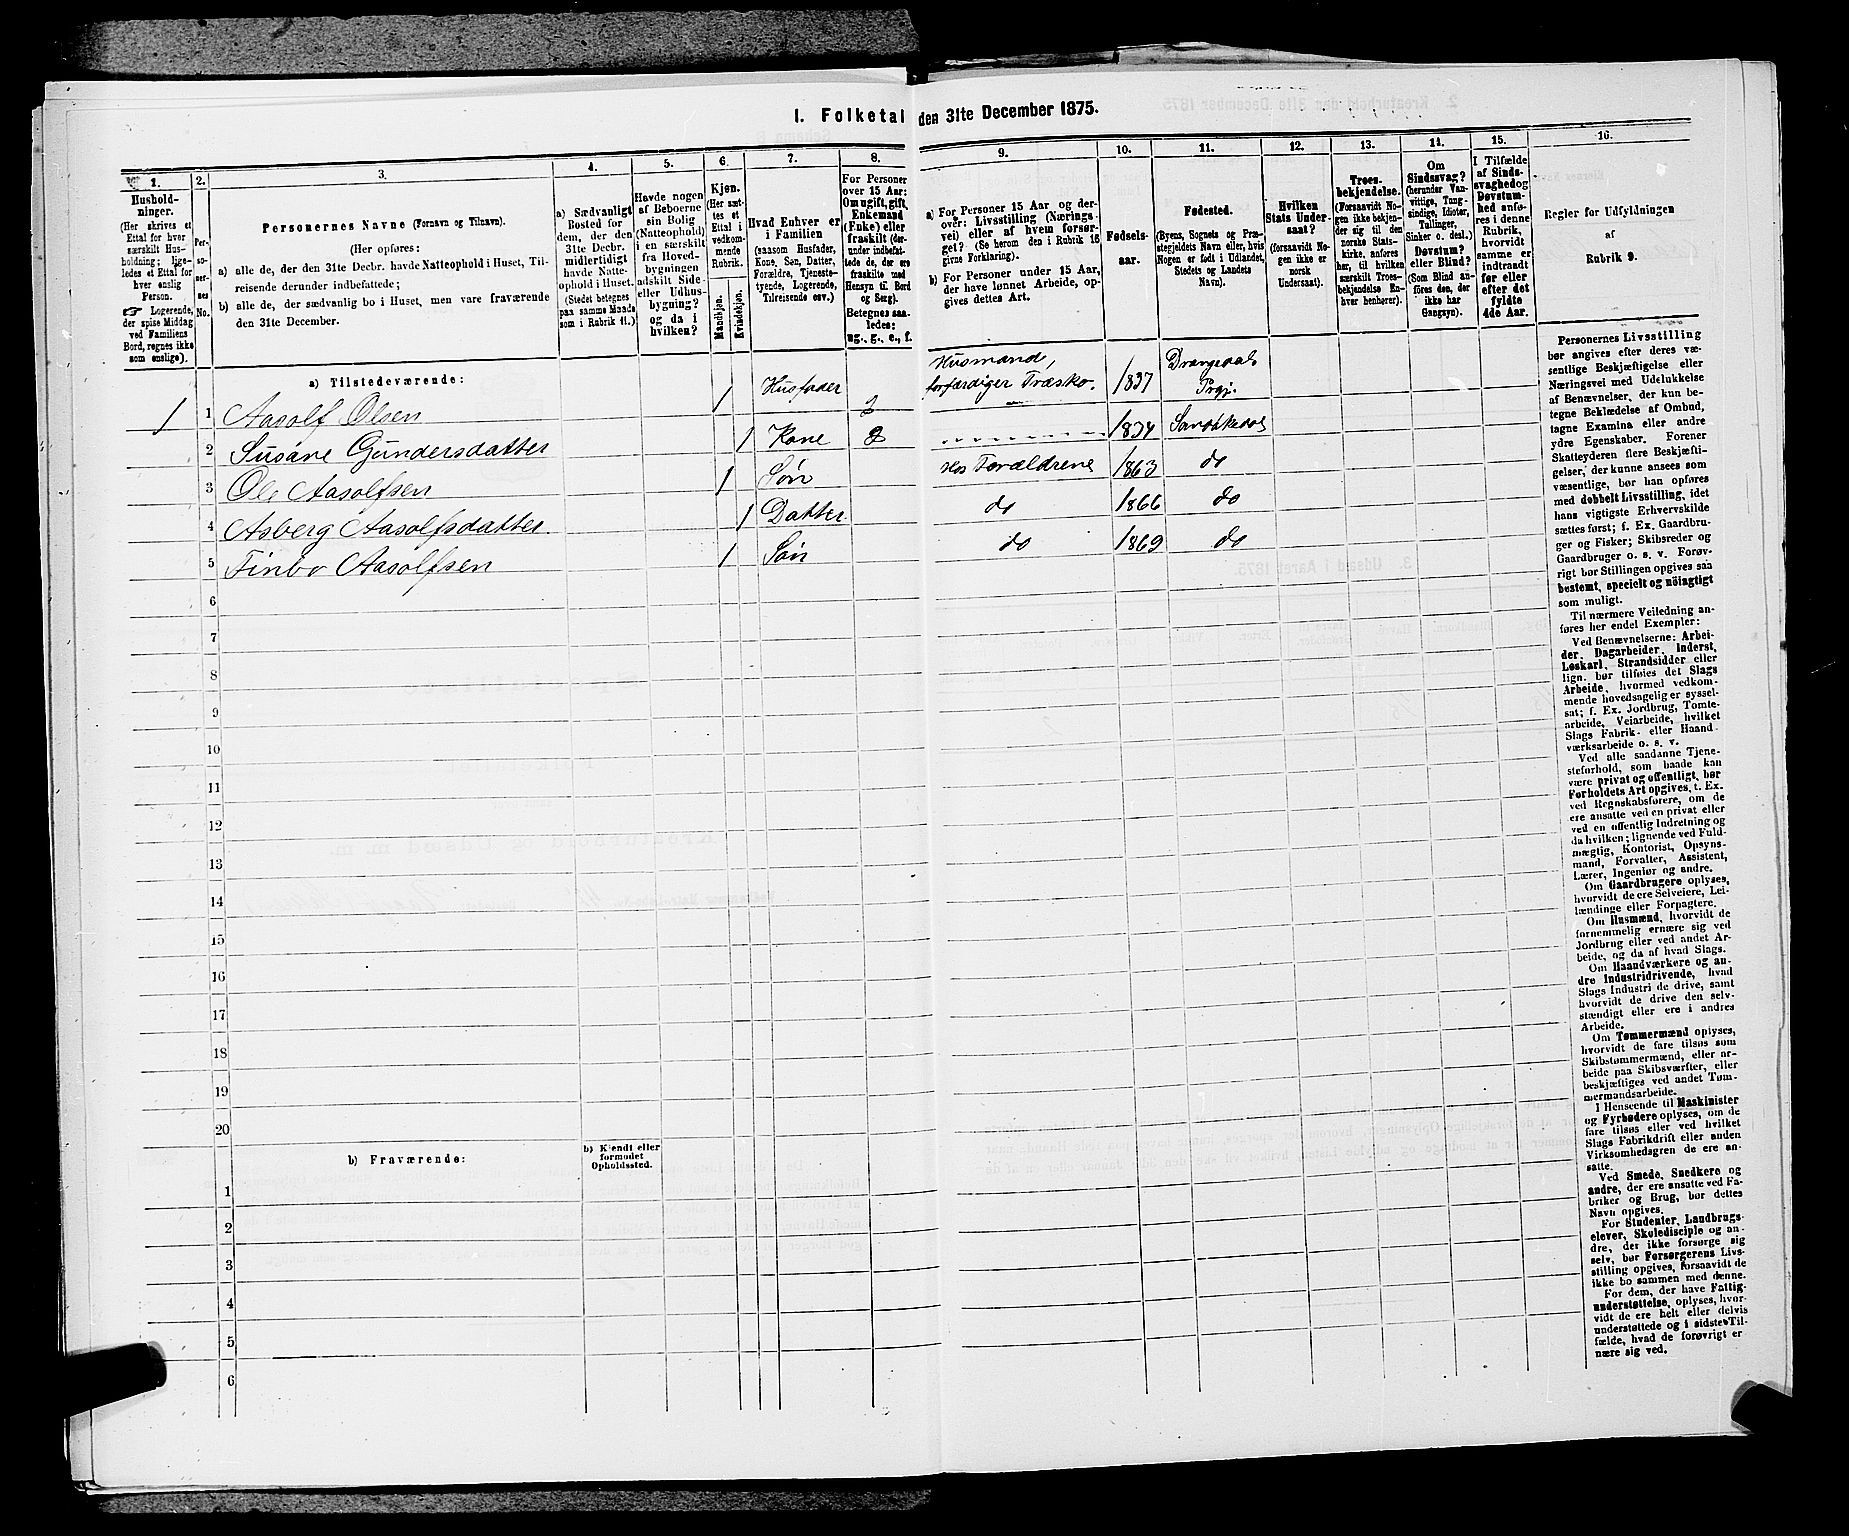 I. Folketal den 31te December 1875.
1.
Hushold-
ninger.
(Her skrives et
Ettal for hver
særskilt Hus-
holdning; lige-
ledes et Ettal for
hver enslig
Person.
☞ Logerende,
der spise Middag
ved Familiens
Bord, regnes ikke
som enslige).
2.
Per-
so-
ner-
nes
No.
3.
Personernes Navne (Fornavn og Tilnavn).
(Her opføres:
a) alle de, der den 31te Decbr. havde Natteophold i Huset, Til-
reisende derunder indbefattede;
b) alle de, der sædvanlig bo i Huset, men vare fraværende
den 31te December.
4.
a) Sædvanligt
Bosted for
dem, der den
31te Decbr.
midlertidigt
havde Natte-
ophold i Huset.
(Stedet betegnes
paa samme Maade
som i Rubrik 11.)
5.
Havde nogen
af Beboerne
sin Bolig
(Natteophold)
i en særskilt
fra Hoved-
bygningen
adskilt Side-
eller Udhus-
bygning?
og da i
hvilken?
6.
Kjøn.
(Her sæt-
tes et
Ettal i
vedkom-
mende
Rubrik.
Mandkjøn.
Kvindekjøn.
7.
Hvad Enhver er
i Familien
(saasom Husfader,
Kone, Søn, Datter,
Forældre, Tjeneste-
tyende, Logerende,
Tilreisende osv.)
8.
For Personer
over 15 Aar:
Om ugift, gift,
Enkemand
(Enke) eller
fraskilt (der-
under indbefat-
tede de, der ere
fraskilte med
Hensyn til Bord
og Seng).
Betegnes saa-
ledes:
ug., g., e., f.
9.
a) For Personer 15 Aar og der-
over: Livsstilling (Nærings-
vei) eller af hvem forsør-
get? (Se herom den i Rubrik 16
givne Forklaring).
b) For Personer under 15 Aar,
der have lønnet Arbeide, op-
gives dettes Art.
10.
Fødsels-
aar.
11.
Fødested.
(Byens, Sognets og Præ-
stegjeldets Navn eller, hvis
Nogen er født i Udlandet,
Stedets og Landets
Navn).
12.
Hvilken
Stats Under-
saat?
(forsaavidt No-
gen ikke er
norsk
Undersaat).
13.
Troes-
bekjendelse.
(Forsaavidt No-
gen ikke bekjen-
der sig til den
norske Stats-
kirke, anføres
her, til hvilken
særskilt Troes-
bekjendelse En-
hver henhører).
14.
Om
Sindssvag?
(herunder Van-
vittige, Tung-
sindige, Idioter,
Tullinger,
Sinker o. desl.)
Døvstum?
eller Blind?
(Som Blind an-
føres den, der
ikke har
Gangsyn).
15.
I Tilfælde
af Sinds-
svaghed og
Døvstum-
hed anfø-
res i denne
Rubrik,
hvorvidt
samme er
indtraadt
før eller
efter det
fyldte
4de Aar.
16.
Regler for Udfyldningen
af
Rubrik 9.
a) Tilstedeværende:
1 1 Aasolf Olsen 1 Husfader Husmand, forfærdiger Træsko. 1837 Drangedals Prgj.
2 Susane Gundersdatter 1 Kone 1834
3 Ole Aasolfsen 1 Søn Hos Forældrene 1863 do
4 Asberg Aasolfsdatter 1 Datter do 1866 do
5 Finbo Aasolfsen 1 Søn do 1869 do
6
7
8
9
10
11
12
13
14
15
16
17
18
19
20
b) Fraværende:
b) Kjendt eller
formodet
Opholdssted.
1
2
3
4
5
6
Personernes Livsstilling
bør angives efter deres væ-
sentlige Beskjæftigelse eller
Næringsvei med Udelukkelse
af Benævnelser, der kun be-
tegne Beklædelse af Ombud,
tagne Examina eller andre
ydre Egenskaber. Forener
Skatteyderen flere Beskjæfti-
gelser, der kunne ansees som
væsentlige, bør han opføres
med dobbelt Livsstilling, idet
hans vigtigste Erhvervskilde
sættes først; f. Ex. Gaardbru-
ger og Fisker; Skibsreder og
Gaardbruger o. s. v. Forøv-
rigt bør Stillingen opgives saa
bestemt, specielt og nöiagtigt
som muligt.
Til nærmere Veiledning an-
føres her endel Exempler:
Ved Benævnelserne: Arbei-
der, Dagarbeider, Inderst,
Løskarl, Strandsidder eller
lign. bør tilføies det Slags
Arbeide, hvormed vedkom-
mende hovedsagelig er syssel-
sat; f. Ex. Jordbrug, Tomte-
arbeide, Veiarbeide, hvilket
Slags Fabrik- eller Haand-
værksarbeide o. s. v.
Ved alle saadanne Tjene-
steforhold, som baade kan
være privat og offentligt, bør
Forholdets Art opgives, t. Ex.
ved Regnskabsførere, om de
ere ansatte ved en privat eller
ved en offentlig Indretning og
da hvilken; lignende ved Fuld-
mægtig, Kontorist, Opsyns-
mand, Forvalter, Assistent,
Lærer, Ingeniør og andre.
Om Gaardbrugere oplyses,
hvorvidt de ere Selveiere, Lei-
lændinge eller Forpagtere.
Om Husmænd, hvorvidt de
fornemmelig ernære sig ved
Jordbrug eller ved andet Ar-
beide, og da af hvad Slags.
Om Haandværkere og an-
dre Industridrivende, hvad
Slags Industri de drive, samt
hvorvidt de drive den selv-
stændigt eller ere i andres
Arbeide.
Om Tømmermænd oplyses,
hvorvidt de fare tilsøs som
Skibstømmermænd, eller ar-
beide paa Skibsværfter, eller
beskjæftiges ved andet Tøm-
mermandsarbeide.
I Henseende til Maskinister
og Fyrbødere oplyses, om de
fare tilsøs eller ved hvilket
Slags Fabrikdrift eller anden
Virksomhedsgren de ere an-
satte.
Ved Smede, Snedkere og
andre, der ere ansatte ved Fa-
briker og Brug, bør dettes
Navn opgives.
For Studenter, Landbrugs-
elever, Skoledisciple og an-
dre, der ikke forsørge sig
selv, bør Forsørgerens Livs-
stilling opgives, forsaavidt de
ikke bo sammen med denne.
For dem, der have Fattig-
understøttelse, oplyses, hvor-
vidt de ere helt eller delvis
understøttede og i sidste Til-
fælde, hvad de forøvrigt er-
nære sig ved.